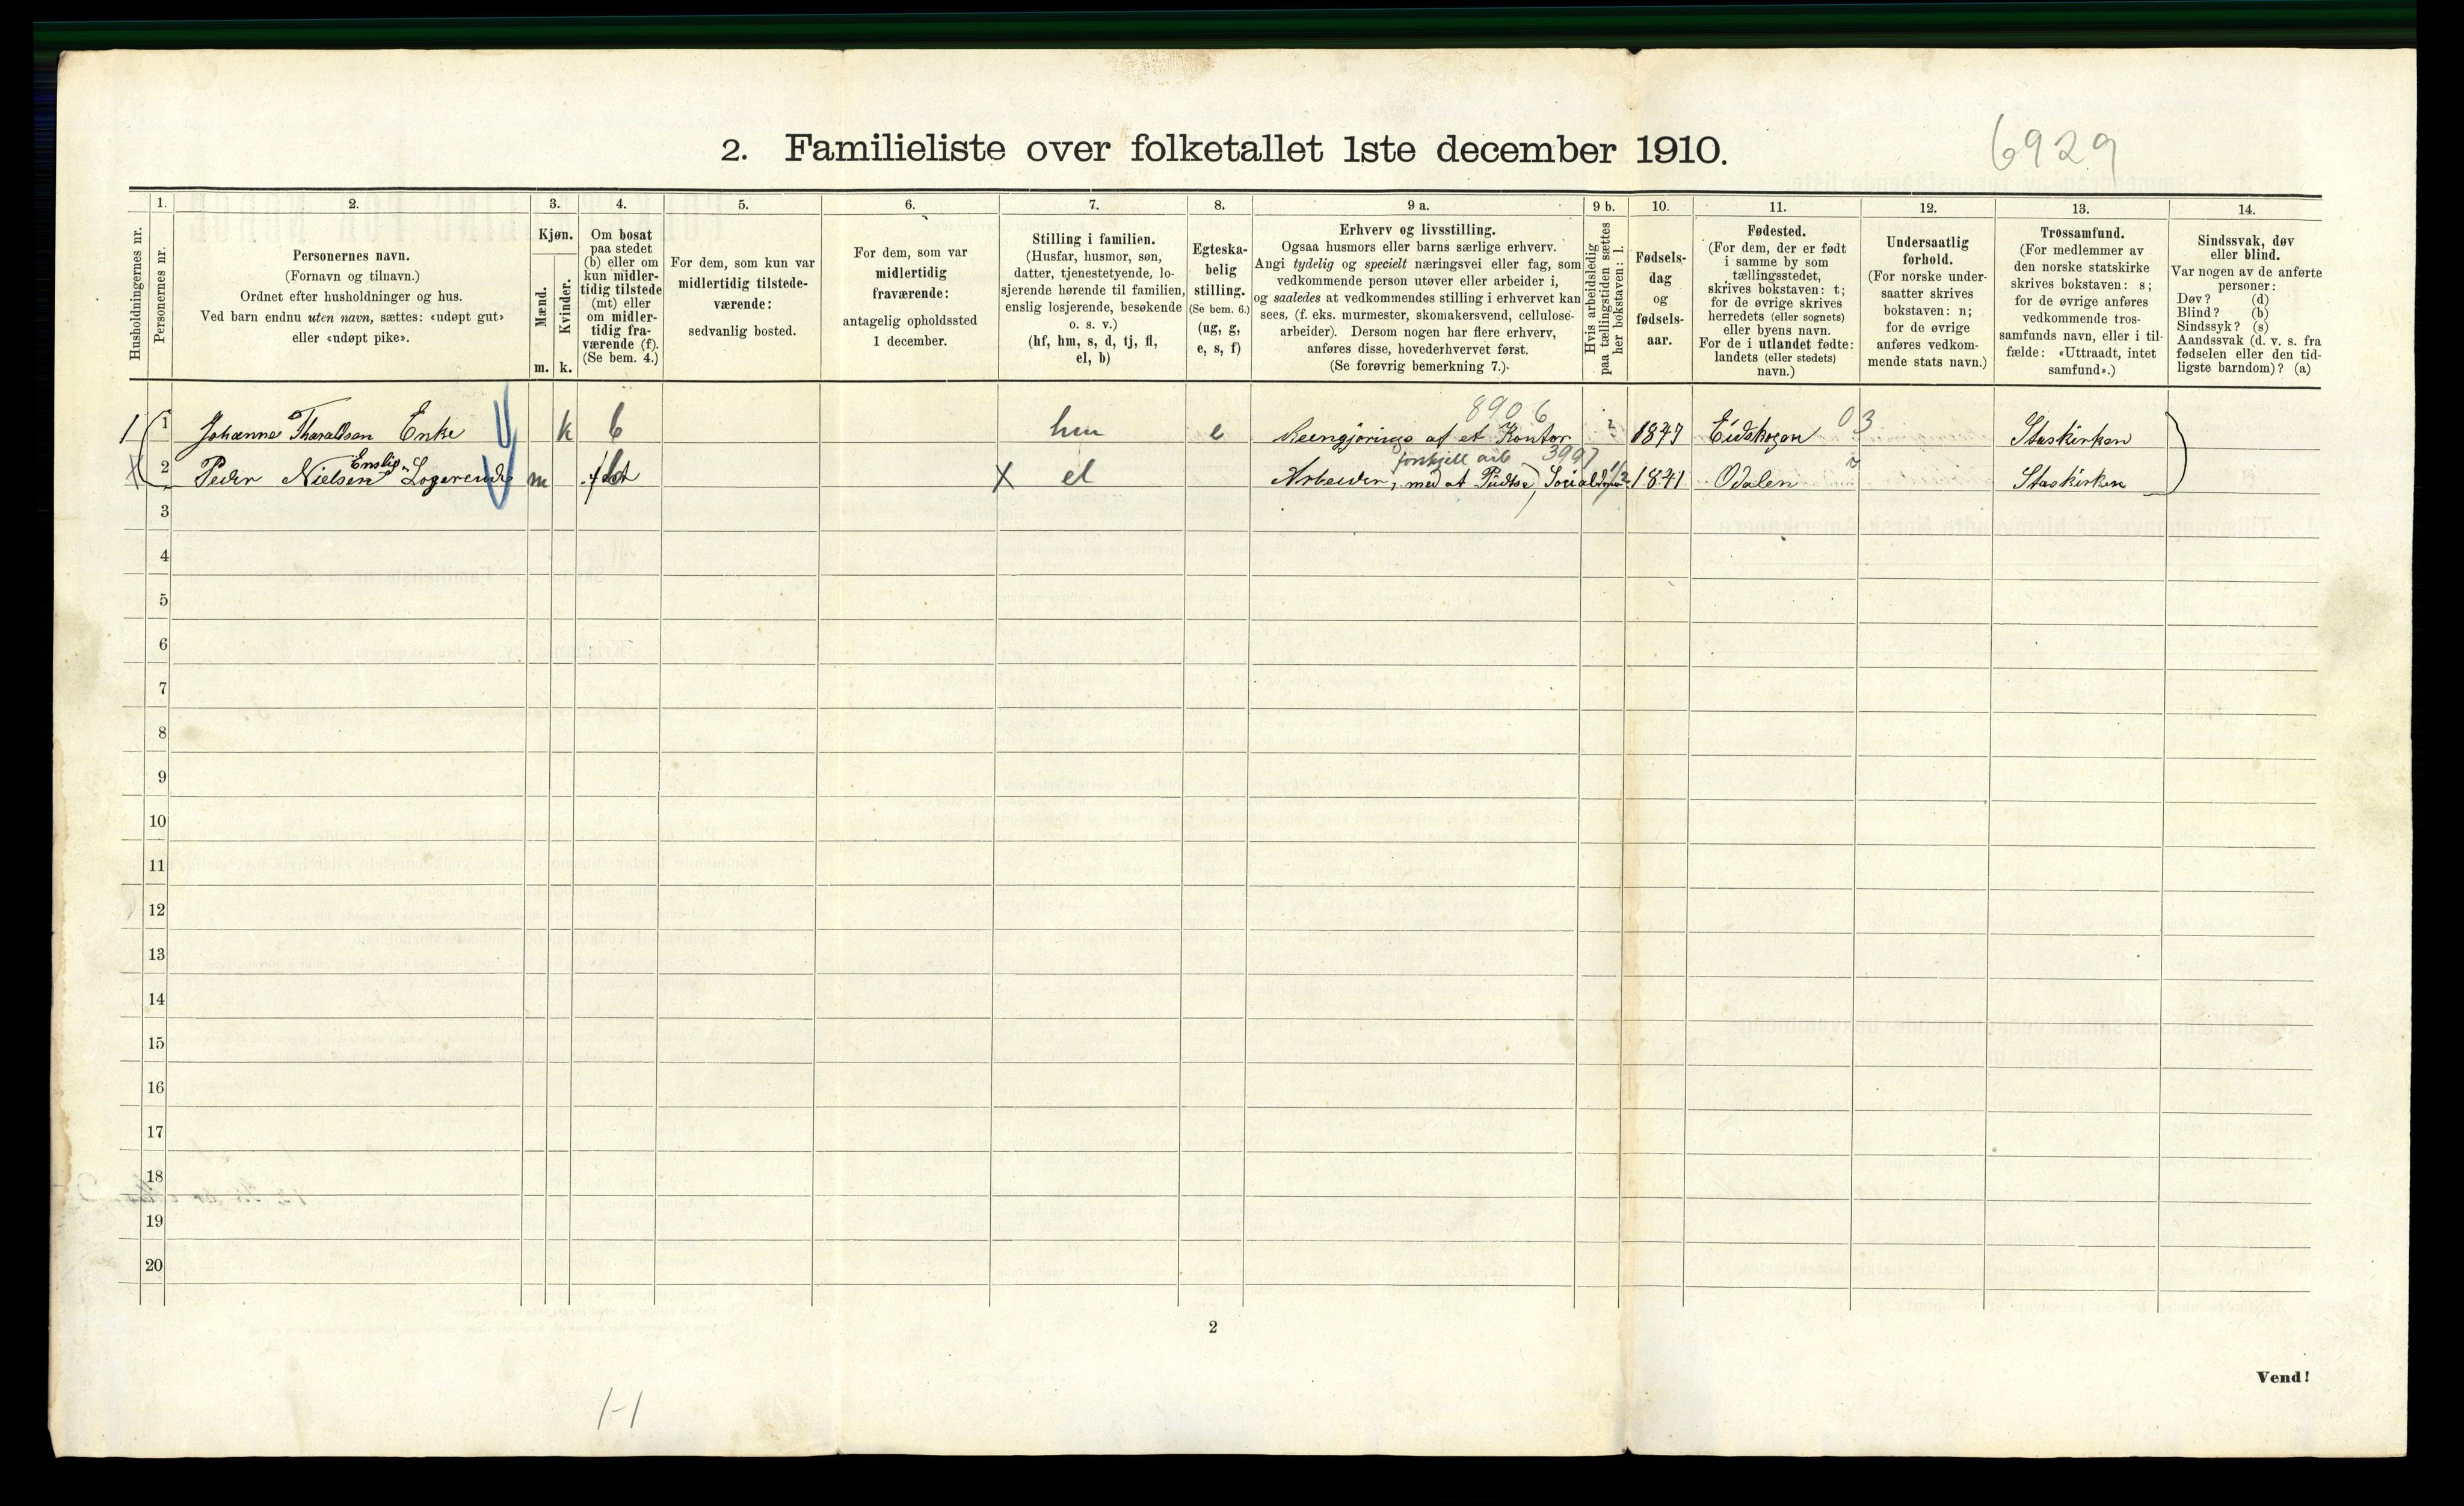 6929
2. Familieliste over folketallet 1ste december 1910.
Husholdningernes nr.
1.
Personernes nr.
2.
Personernes navn.
(Fornavn og tilnavn.)
Ordnet efter husholdninger og hus.
Ved barn endnu uten navn, sættes: «udøpt gut»
eller «udøpt pike».
3.
Kjøn.
Mænd.
Kvinder.
m. k.
4.
Om bosat
paa stedet
(b) eller om
kun midler-
tidig tilstede
(mt) eller
om midler-
tidig fra-
værende (f).
(Se bem. 4.)
5.
For dem, som kun var
midlertidig tilstede-
værende:
sedvanlig bosted.
6.
For dem, som var
midlertidig
fraværende:
antagelig opholdssted
1 december.
7.
Stilling i familien.
(Husfar, husmor, søn,
datter, tjenestetyende, lo-
sjerende hørende til familien,
enslig losjerende, besøkende
o. s. v.)
(hf, hm, s, d, tj, fl,
el, b)
8.
Egteska-
belig
stilling.
(Se bem. 6.)
(ug, g,
e, s, f)
9 a.
Erhverv og livsstilling.
Ogsaa husmors eller barns særlige erhverv.
Angi tydelig og specielt næringsvei eller fag, som
vedkommende person utøver eller arbeider i,
og saaledes at vedkommendes stilling i erhvervet kan
sees, (f. eks. murmester, skomakersvend, cellulose-
arbeider). Dersom nogen har flere erhverv,
anføres disse, hovederhvervet først.
(Se forøvrig bemerkning 7.)
9 b.
Hvis arbeidsledig
paa tællingstiden sættes
her bokstaven: l.
10.
Fødsels-
dag
og
fødsels-
aar.
11.
Fødested.
(For dem, der er født
i samme by som
tællingsstedet,
skrives bokstaven: t;
for de øvrige skrives
herredets (eller sognets)
eller byens navn.
For de i utlandet fødte:
landets (eller stedets)
navn.)
12.
Undersaatlig
forhold.
(For norske under-
saatter skrives
bokstaven: n;
for de øvrige
anføres vedkom-
mende stats navn.)
13.
Trossamfund.
(For medlemmer av
den norske statskirke
skrives bokstaven: s;
for de øvrige anføres
vedkommende tros-
samfunds navn, eller i til-
fælde: «Uttraadt, intet
samfund».)
14.
Sindssvak, døv
eller blind.
Var nogen av de anførte
personer:
Døv? (d)
Blind? (b)
Sindssyk? (s)
Aandssvak (d. v. s. fra
fødselen eller den tid-
ligste barndom)? (a)
8906
1 1 Johanne Tharaldsen Enke k b hm e Reengjøringe af et Kontor 1847 Eidskogen 03 Staskirken
Enslig forskjell arb 3997
X 2 Peder Nielsen Logerende m X el Arbeider, med at Pudse, 1841 Odalen Staskirken
3
4
5
6
7
8
9
10
11
12
13
14
15
16
17
18
19
20
2
Vend!
H